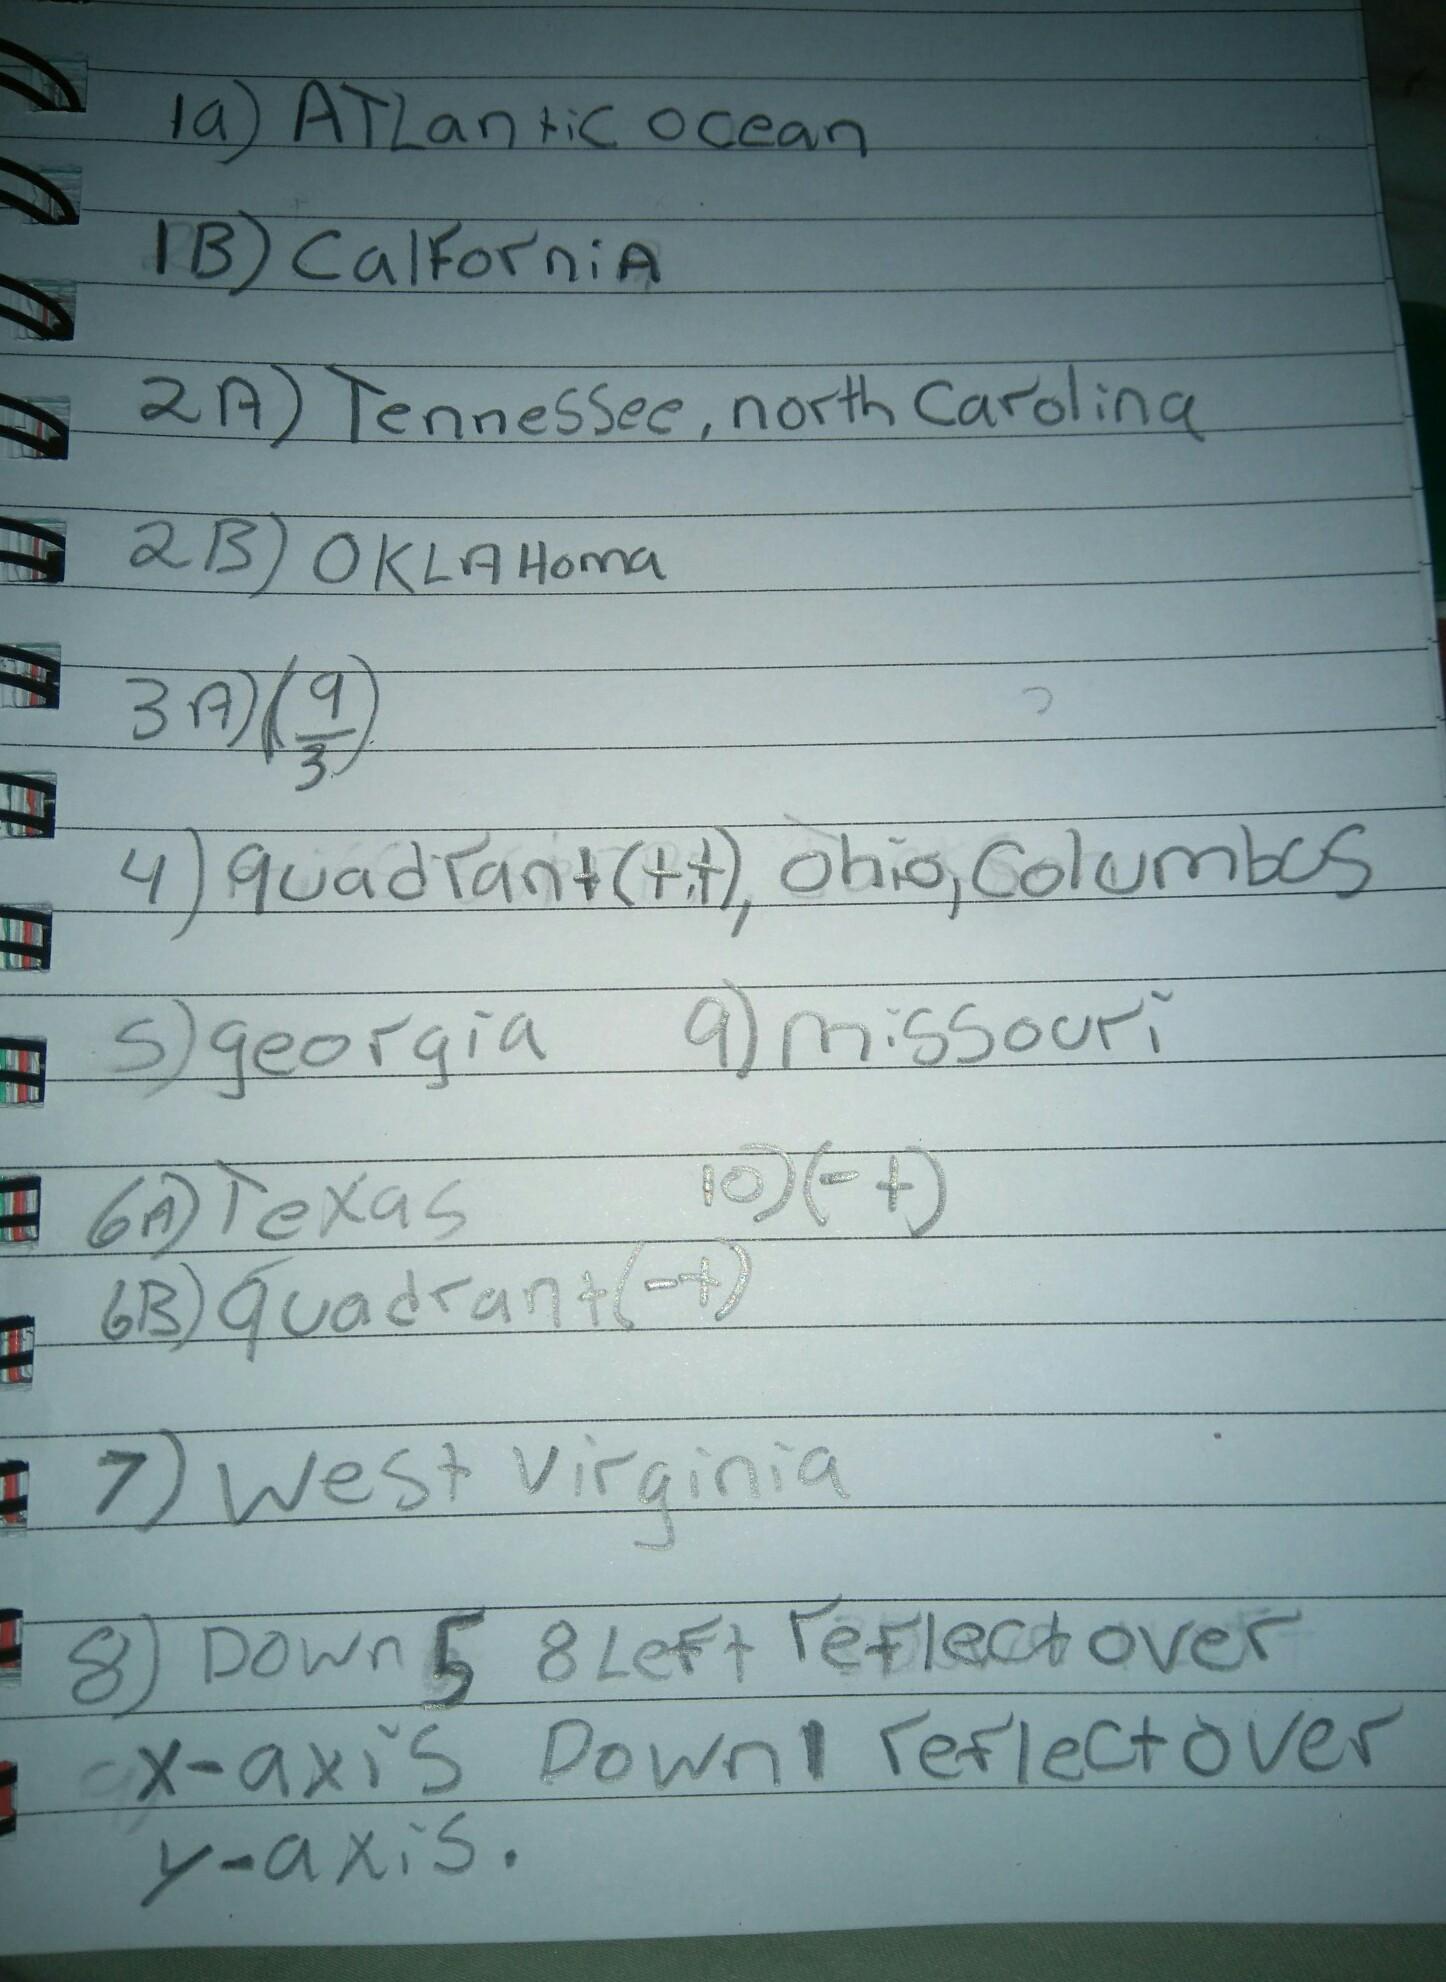 1a) ATLantic ocean
1B) CalForniA
2A) Tennessee, north Carolina
2B) OKLAHoma
3A) (9/3)
4) quadrant(+,+), Ohio, Columbus
5) georgia 9) missouri
6A) Texas 10) (-+)
6B) quadrant(-+)
7) West Virginia
8) Down 5 8 Left reflect over
x-axis Down 1 reflect over
y-axis.